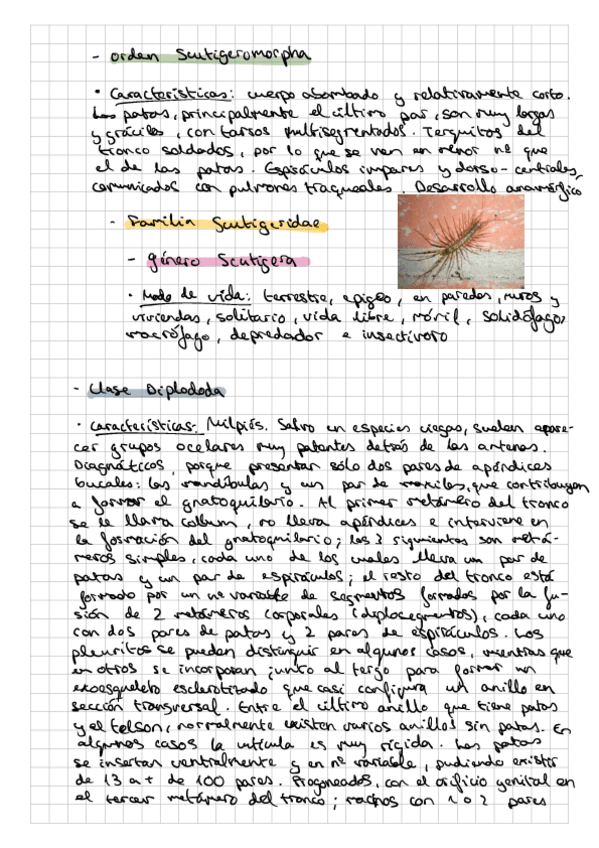 - Orden Scutigeromorpha
• Características: cuerpo abombado y relativamente corto.
Las patas, principalmente el último par, son muy largas
y gráciles, con tarsos multisegmentados. Terguitos del
tronco soldados, por lo que se ven en menor nº que
el de las patas. Espiráculos impares y dorso-centrales,
comunicados con pulmones traqueales. Desarrollo anamórfico
- Familia Scutigeridae
- género Scutigera
• Modo de vida: terrestre, epigeo, en paredes, muros y
viviendas, solitario, vida libre, móvil, solidófago,
macrófago, depredador e insectívoro
- Clase Diplododa
• Características: Milpiés. Salvo en especies ciegas, suelen apare-
cer grupos ocelares muy patentes detrás de las antenas.
Diagnáticos, porque presentan sólo dos pares de apéndices
bucales: las mandíbulas y un par de maxilas, que contribuyen
a formar el gnatoquilario. Al primer metámero del tronco
se le llama collum, no lleva apéndices e interviene en
la formación del gnatoquilario; los 3 siguientes son metá-
meros simples, cada uno de los cuales lleva un par de
patas y un par de espiráculos; el resto del tronco está
formado por un nº variable de segmentos formados por la fu-
sión de 2 metámeros corporales (diplosegmentos), cada uno
con dos pares de patas y 2 pares de espiráculos. Los
pleuritos se pueden distinguir en algunos casos, mientras que
en otros se incorporan junto al tergo para formar un
exoesqueleto esclerotizado que casi configura un anillo en
sección transversal. Entre el último anillo que tiene patas
y el telson, normalmente existen varios anillos sin patas. En
algunos casos la cutícula es muy rígida. Las patas
se insertan ventralmente y en nº variable, pudiendo existir
de 13 a + de 100 pares. Progoneados, con el orificio genital en
el tercer metámero del tronco; machos con 1 o 2 pares